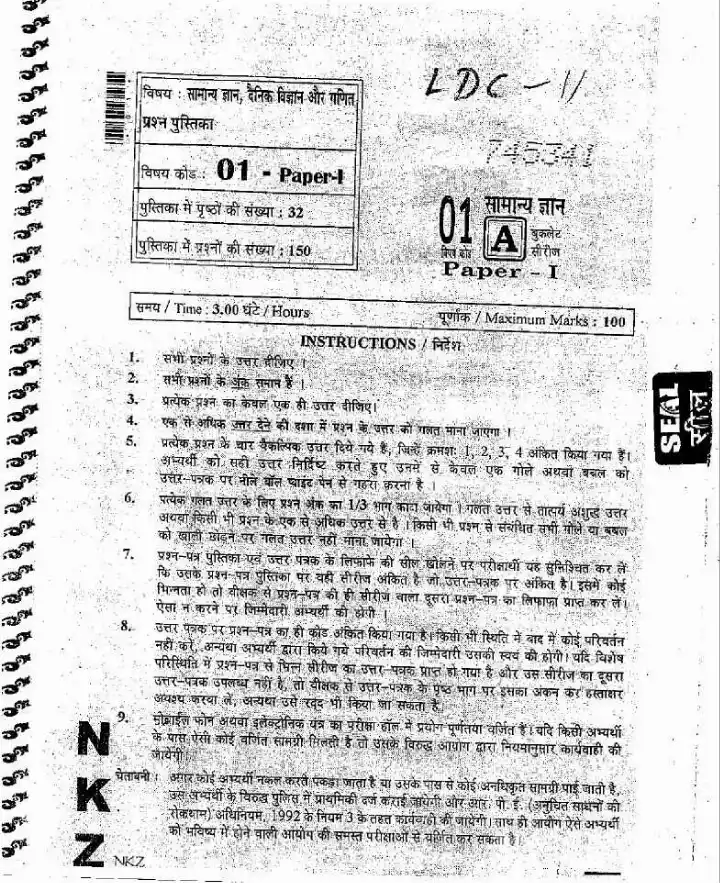 LDC - 11
विषय : सामान्य ज्ञान, दैनिक विज्ञान और गणित
प्रश्न पुस्तिका
745341
विषय कोड : 01 - Paper-I
पुस्तिका में पृष्ठों की संख्या : 32
पुस्तिका में प्रश्नों की संख्या : 150
01 सामान्य ज्ञान
A बुकलेट
सीरीज
Paper - I
समय / Time : 3.00 घंटे / Hours
पूर्णांक / Maximum Marks : 100
INSTRUCTIONS / निर्देश
1. सभी प्रश्नों के उत्तर दीजिए ।
2. सभी प्रश्नों के अंक समान हैं ।
3. प्रत्येक प्रश्न का केवल एक ही उत्तर दीजिए।
4. एक से अधिक उत्तर देने की दशा में प्रश्न के उत्तर को गलत माना जाएगा ।
5. प्रत्येक प्रश्न के चार वैकल्पिक उत्तर दिये गये हैं, जिन्हें क्रमश: 1, 2, 3, 4 अंकित किया गया हैं।
अभ्यर्थी को सही उत्तर निर्दिष्ट करते हुए उनमें से केवल एक गोले अथवा बबल को
उत्तर-पत्रक पर नीले बॉल प्वाइंट पेन से गहरा करना है ।
6. प्रत्येक गलत उत्तर के लिए प्रश्न अंक का 1/3 भाग काटा जायेगा । गलत उत्तर से तात्पर्य अशुद्ध उत्तर
अथवा किसी भी प्रश्न के एक से अधिक उत्तर से है । किसी भी प्रश्न से संबंधित सभी गोले या बबल
को खाली छोड़ने पर गलत उत्तर नहीं माना जायेगा ।
7. प्रश्न-पत्र पुस्तिका एवं उत्तर पत्रक के लिफाफे की सील खोलने पर परीक्षार्थी यह सुनिश्चित कर लें
कि उसके प्रश्न-पत्र पुस्तिका पर वही सीरीज अंकित है जो उत्तर-पत्रक पर अंकित है। इसमें कोई
भिन्नता हो तो वीक्षक से प्रश्न-पत्र की ही सीरीज वाला दूसरा प्रश्न-पत्र का लिफाफा प्राप्त कर लें।
ऐसा न करने पर जिम्मेदारी अभ्यर्थी की होगी ।
8. उत्तर पत्रक पर प्रश्न-पत्र का ही कोड अंकित किया गया है। किसी भी स्थिति में बाद में कोई परिवर्तन
नहीं करें, अन्यथा अभ्यर्थी द्वारा किये गये परिवर्तन की जिम्मेदारी उसकी स्वयं की होगी। यदि विशेष
परिस्थिति में प्रश्न-पत्र से भिन्न सीरीज का उत्तर-पत्रक प्राप्त हो गया है और उस सीरीज का दूसरा
उत्तर-पत्रक उपलब्ध नहीं है, तो वीक्षक से उत्तर-पत्रक के पृष्ठ भाग पर इसका अंकन कर हस्ताक्षर
अवश्य करवा लें, अन्यथा उसे रद्द भी किया जा सकता है.
9. मोबाईल फोन अथवा इलेक्ट्रोनिक यंत्र का परीक्षा हॉल में प्रयोग पूर्णतया वर्जित हैं। यदि किसी अभ्यर्थी
के पास ऐसी कोई वर्जित सामग्री मिलती है तो उसके विरुद्ध आयोग द्वारा नियमानुसार कार्यवाही की
जायेगी।
चेतावनी : अगर कोई अभ्यर्थी नकल करते पकड़ा जाता है या उसके पास से कोई अनधिकृत सामग्री पाई जाती है,
उस अभ्यर्थी के विरुद्ध पुलिस में प्राथमिकी दर्ज कराई जायेगी और आर. पी. ई. (अनुचित साधनों की
रोकथाम) अधिनियम, 1992 के नियम 3 के तहत कार्यवाही की जायेगी। साथ ही आयोग ऐसे अभ्यर्थी
को भविष्य में होने वाली आयोग की समस्त परीक्षाओं से वर्जित कर सकता है।
SEAL
सील
NKZ
NKZ